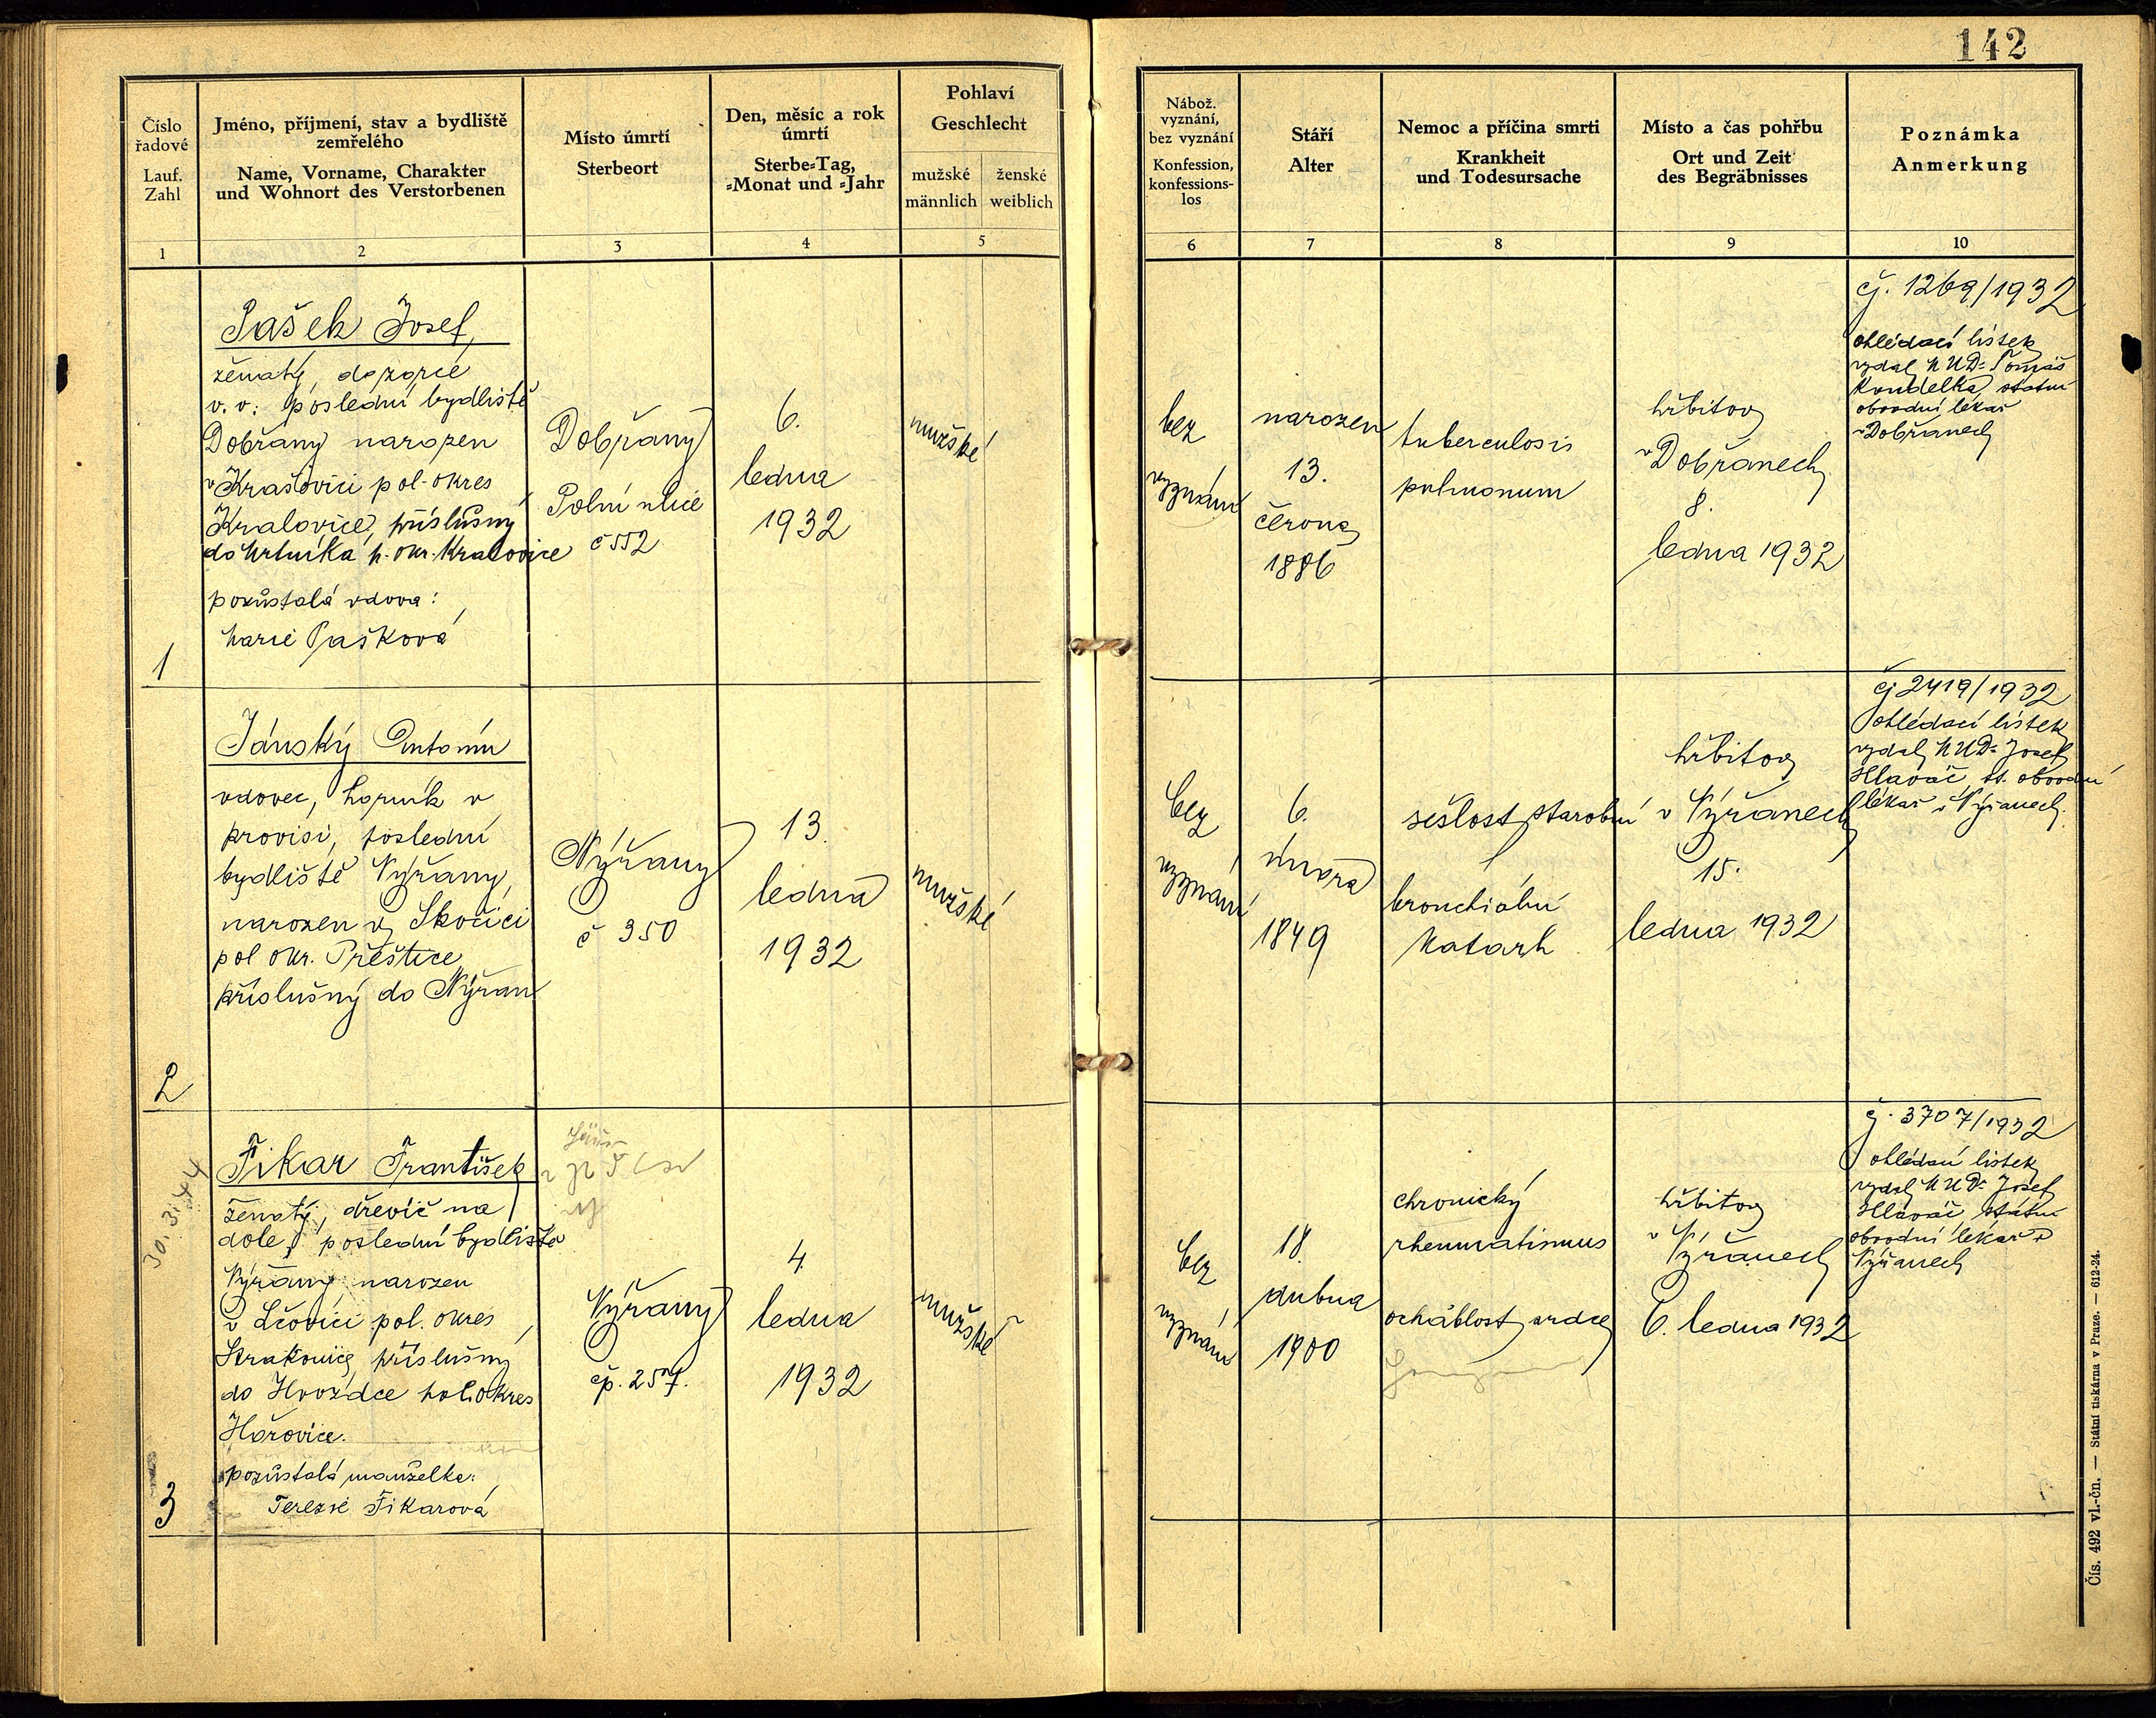 142
Číslo řadové
Lauf. Zahl
1
Jméno, příjmení, stav a bydliště
zemřelého
Name, Vorname, Charakter
und Wohnort des Verstorbenen
2
Místo úmrtí
Sterbeort
3
Den, měsíc a rok
úmrtí
Sterbe-Tag,
-Monat und -Jahr
4
Pohlaví
Geschlecht
mužské
männlich
ženské
weiblich
5
Nábož.
vyznání,
bez vyznání
Konfession,
konfessions-
los
6
Stáří
Alter
7
Nemoc a příčina smrti
Krankheit
und Todesursache
8
Místo a čas pohřbu
Ort und Zeit
des Begräbnisses
9
Poznámka
Anmerkung
10
1
Pašek Josef,
ženatý, dozorce
v. v. poslední bydliště
Dobřany narozen
v Krašovici pol. okres
Kralovice, příslušný
do p. okr. Kralovice
pozůstalá vdova:
Marie Pašková
Dobřany
Polní ulice
č 552
6.
ledna
1932
mužské
bez
vyznání
narozen
13.
června
1886
tuberculosis
pulmonum
hřbitov
v Dobřanech
8.
ledna 1932
čj. 1269/1932
ohledací lístek
vydal MUDr Tomáš
Koudelka, státní
obvodní lékař
v Dobřanech
2
Jánský Antonín
vdovec, horník v
provisi, poslední
bydliště Nýřany,
narozen v Skočici
pol okr. Přeštice
příslušný do Nýřan
Nýřany
č 350
13.
ledna
1932
mužské
bez
vyznání
6.
února
1849
sešlost starobní
bronchiální
katarh
hřbitov
v Nýřanech
15.
ledna 1932
čj 2419/1932
ohledací lístek
vydal MUDr Josef
Hlaváč st. obvodní
lékař v Nýřanech.
3
30. 3. 44
Fikar František
ženatý, dřevič na
dole, poslední bydliště
Nýřany, narozen
v Lčovici pol. okres
Strakonice, příslušný
do Hvozdce pol. okres
Hořovice.
pozůstalá manželka:
Terezie Fikarová
Nýřany
čp. 257.
4.
ledna
1932
mužské
bez
vyznání
18.
dubna
1900
chronický
rheumatismus
ochablost srdce
hřbitov
v Nýřanech
6. ledna 1932
čj. 3707/1932
ohledací lístek
vydal MUDr Josef
Hlaváč státní
obvodní lékař v
Nýřanech
Čís. 492 vl.-čn. — Státní tiskárna v Praze. — 612-24.